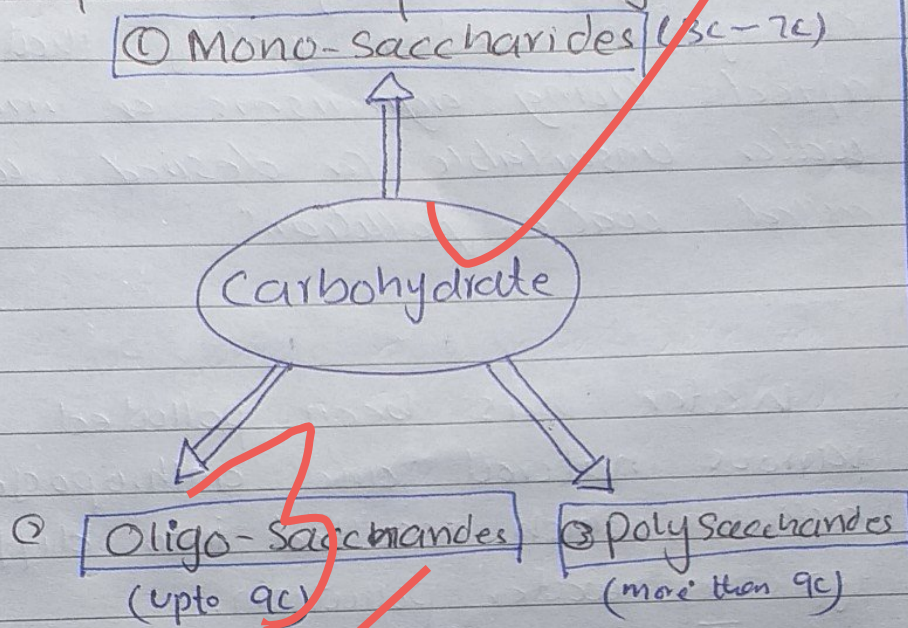 ① Mono-saccharides (3c-7c)
Carbohydrate
② Oligo-Saccharides ③ Polysaccharides
(upto 9c) (more than 9c)